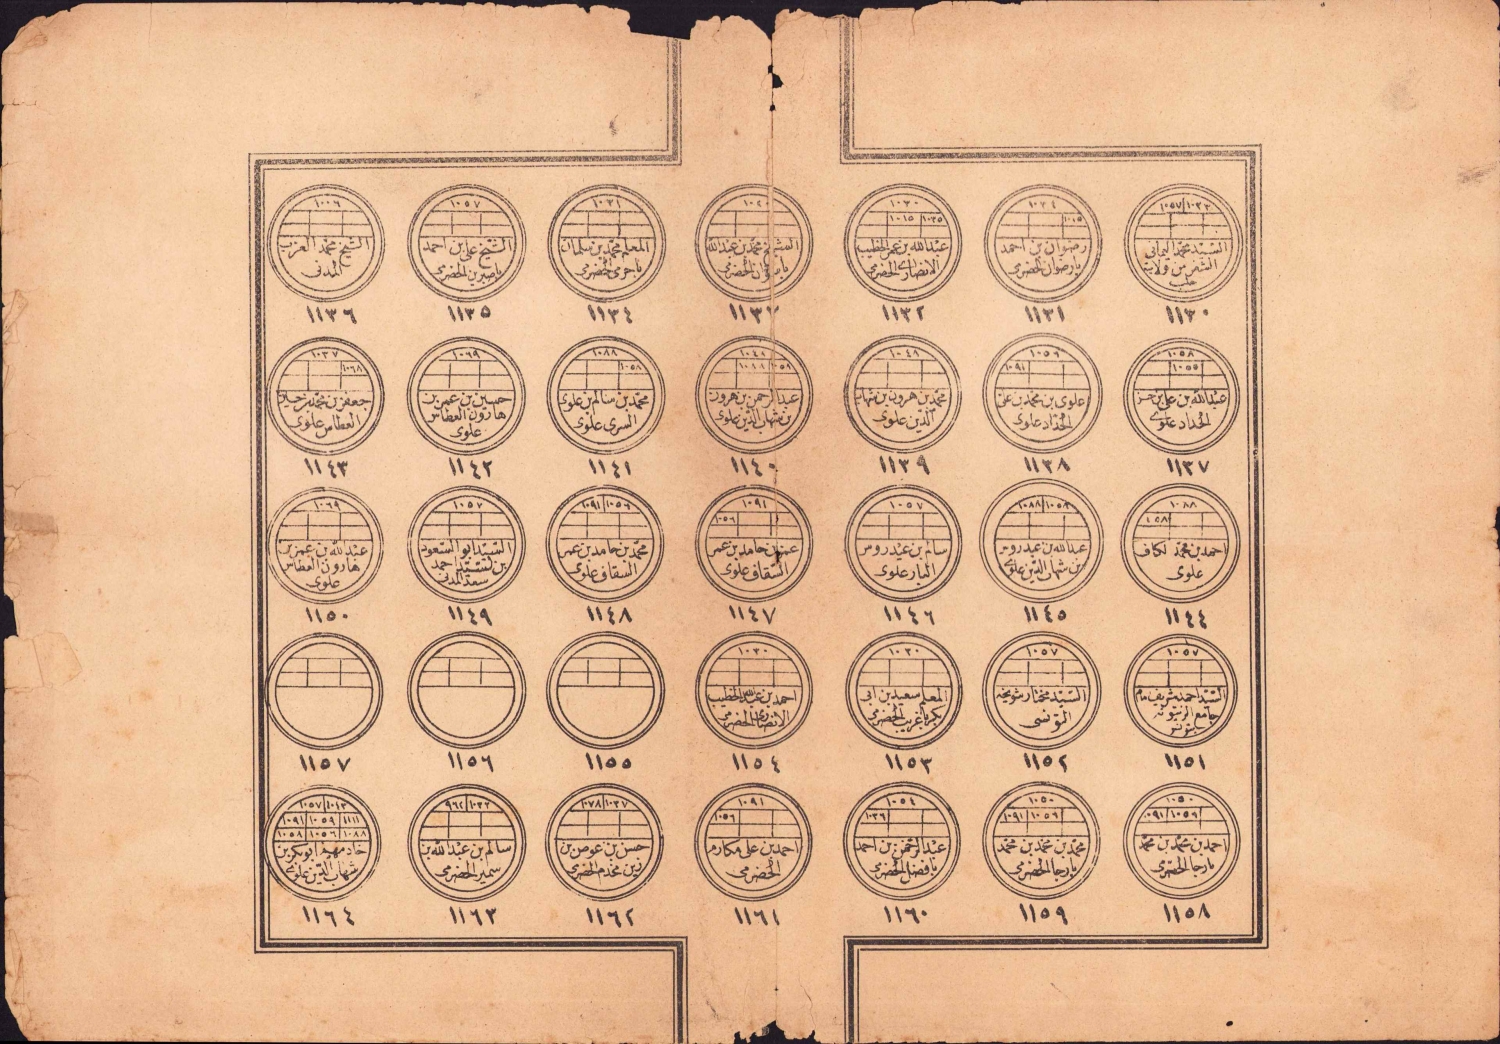 ١٠٥٧ ١٠٢٢
السيد محمد اليماني
حلب
١١٣٠
١٠٢٤
١٠١٥
رضوان بن احمد
بارضوان الحضرمي
١١٣١
١٠٢٠
١٠١٥ ١٠٢٥
عبدالله بن عمر الخطيب
الانصاري الحضرمي
١١٣٢
١٠٤٠
الشيخ محمد بن عبدالله
الحضرمي
١١٣٣
١٠٢١
المعلم محمد بن سلمان
الحضرمي
١١٣٤
١٠٥٧
الشيخ علي بن احمد
باصبرين الحضرمي
١١٣٥
١٠٠٦
الشيخ محمد العزب
المدني
١١٣٦
١٠٥٨
١٠٥٥
عبدالله بن علي بن
الحداد علوي
١١٣٧
١٠٥٦
١٠٩١
علوي بن محمد بن علي
الحداد علوي
١١٣٨
١٠٤٨
محمد بن هرون بن شهاب
الدين علوي
١١٣٩
١٠٤٨
١٠٨٨ ١٠٥٩
عبدالرحمن بن هرون
بن شهاب الدين علوي
١١٤٠
١٠٨٨
١٠٥٨
محمد بن سالم بن علوي
السري علوي
١١٤١
١٠٦٩
حسين بن عمر بن
هارون العطاس
علوي
١١٤٢
١٠٣٧
١٠٦٨
جعفر بن محمد بن
العطاس علوي
١١٤٣
١٠٨٨
احمد بن محمد لكاف
علوي
١١٤٤
١٠٨٨ ١٠٥٩
عبدالله بن عيدروس
بن شهاب الدين علوي
١١٤٥
١٠٥٧
سالم بن عيدروس
البار علوي
١١٤٦
١٠٩١
١٠٥٦
عمر بن حامد بن عمر
السقاف علوي
١١٤٧
١٠٩١ ١٠٥٦
محمد بن حامد بن عمر
السقاف علوي
١١٤٨
١٠٥٧
السيد ابو السعود
بن السيد احمد
سعد المدني
١١٤٩
١٠٦٩
عبدالله بن عمر بن
هارون العطاس
علوي
١١٥٠
١٠٥٧
السيد احمد شريف امام
جامع الزيتونه
بتونس
١١٥١
١٠٥٧
السيد مختار شويخه
التونسي
١١٥٢
١٠٢٠
المعلم سعيد بن ابي
بكر باغريب الحضرمي
١١٥٣
١٠٢٠
احمد بن عبدالله الخطيب
الانصاري الحضرمي
١١٥٤
١١٥٥
١١٥٦
١١٥٧
١٠٥٠
١٠٩١ ١٠٥٦
احمد بن محمد بن محمد
بارجا الحضرمي
١١٥٨
١٠٥٠
١٠٩١ ١٠٥٦
محمد بن محمد بن محمد
بارجا الحضرمي
١١٥٩
١٠٥٤
١٠٣٩
عبدالرحمن بن احمد
بافضل الحضرمي
١١٦٠
١٠٩١
١٠٥٦
احمد بن علي مكارم
الحضرمي
١١٦١
١٠٧٨ ١٠٢٧
حسن بن عوض بن
زين مخدم الحضرمي
١١٦٢
٩٦٤ ١٠٢٢
سالم بن عبدالله بن
سمير الحضرمي
١١٦٣
١٠٥٧ ١٠١٣
١٠٩١ ١٠٥٩ ١١١١
١٠٥٨ ١٠٥٦ ١٠٨٨
خادمهم ابوبكر بن
شهاب الدين علوي
١١٦٤